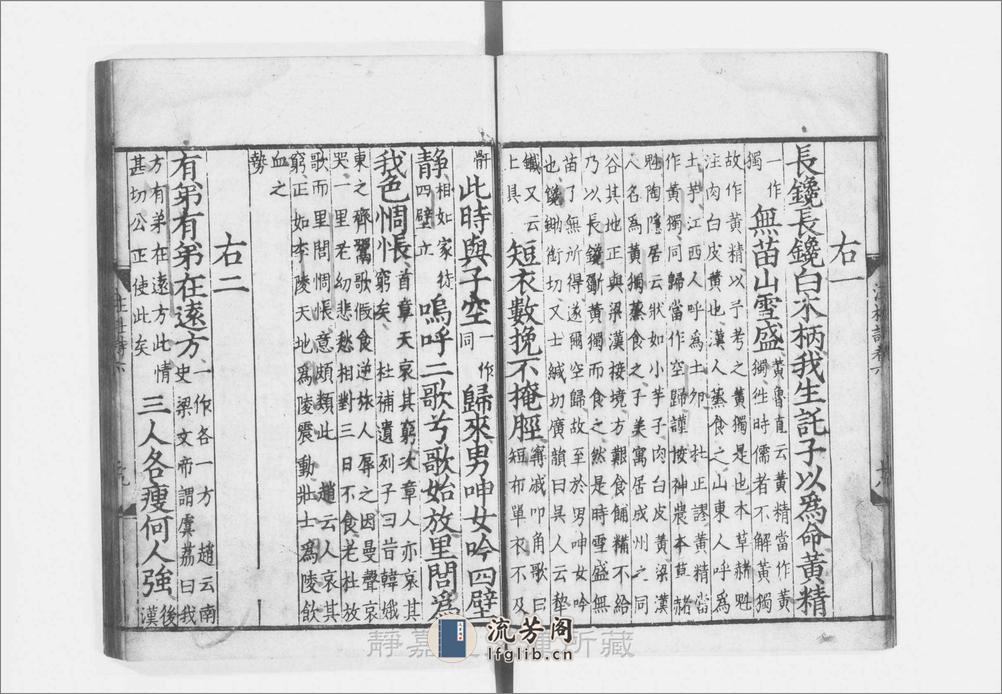 右一
長鑱長鑱白木柄我生託子以爲命黃精
一作獨
無苗山雪盛
黃魯直云黃精當作黃獨徃時儒者不解黃獨
故作黃精以予考之黃獨是也本草赭魁
注肉白皮黃也漢人蒸食之山東人呼爲
土芋江西人呼爲土卵 杜正謬黃精當
作黃獨同歸當作空歸謹按神農本草赭
魁陶隱居云狀如小芋子肉白皮黃梁漢
人名爲黃獨蒸食之子美寓居成州之同
谷其地正與梁漢接境方艱食餔糒不給
乃以長鑱斸黃獨而食之然是時雪盛無
苗了無所得遂爾空歸故至於男呻女吟
也鑱鋤銜切又士緘切廣韻曰吳人云犂
鐵又云
上具
短衣數挽不掩脛
甯戚叩角歌曰
短布單衣不及
骭
此時與子空
一作
同
歸來男呻女吟四壁
靜
相如家徒
四壁立
嗚呼二歌兮歌始放里閭爲
我色惆悵
首章天哀其窮次章人亦哀其
窮矣 杜補遺列子曰昔韓娥
東之齊鬻歌假食逆旅人辱之因曼聲哀
哭一里老幼悲愁相對三日不食老杜放
歌而里閭惆悵意頗類此 趙云人哀其
窮正如李陵天地爲陵震動壯士爲陵飲
血之
勢
右二
有弟有弟在遠方
一作各一方 趙云南
史梁文帝謂虞荔曰我
方有弟在遠方此情
甚切公正使此矣
三人各瘦何人強
後
漢
静嘉
所藏
流芳阁
lfglib.cn